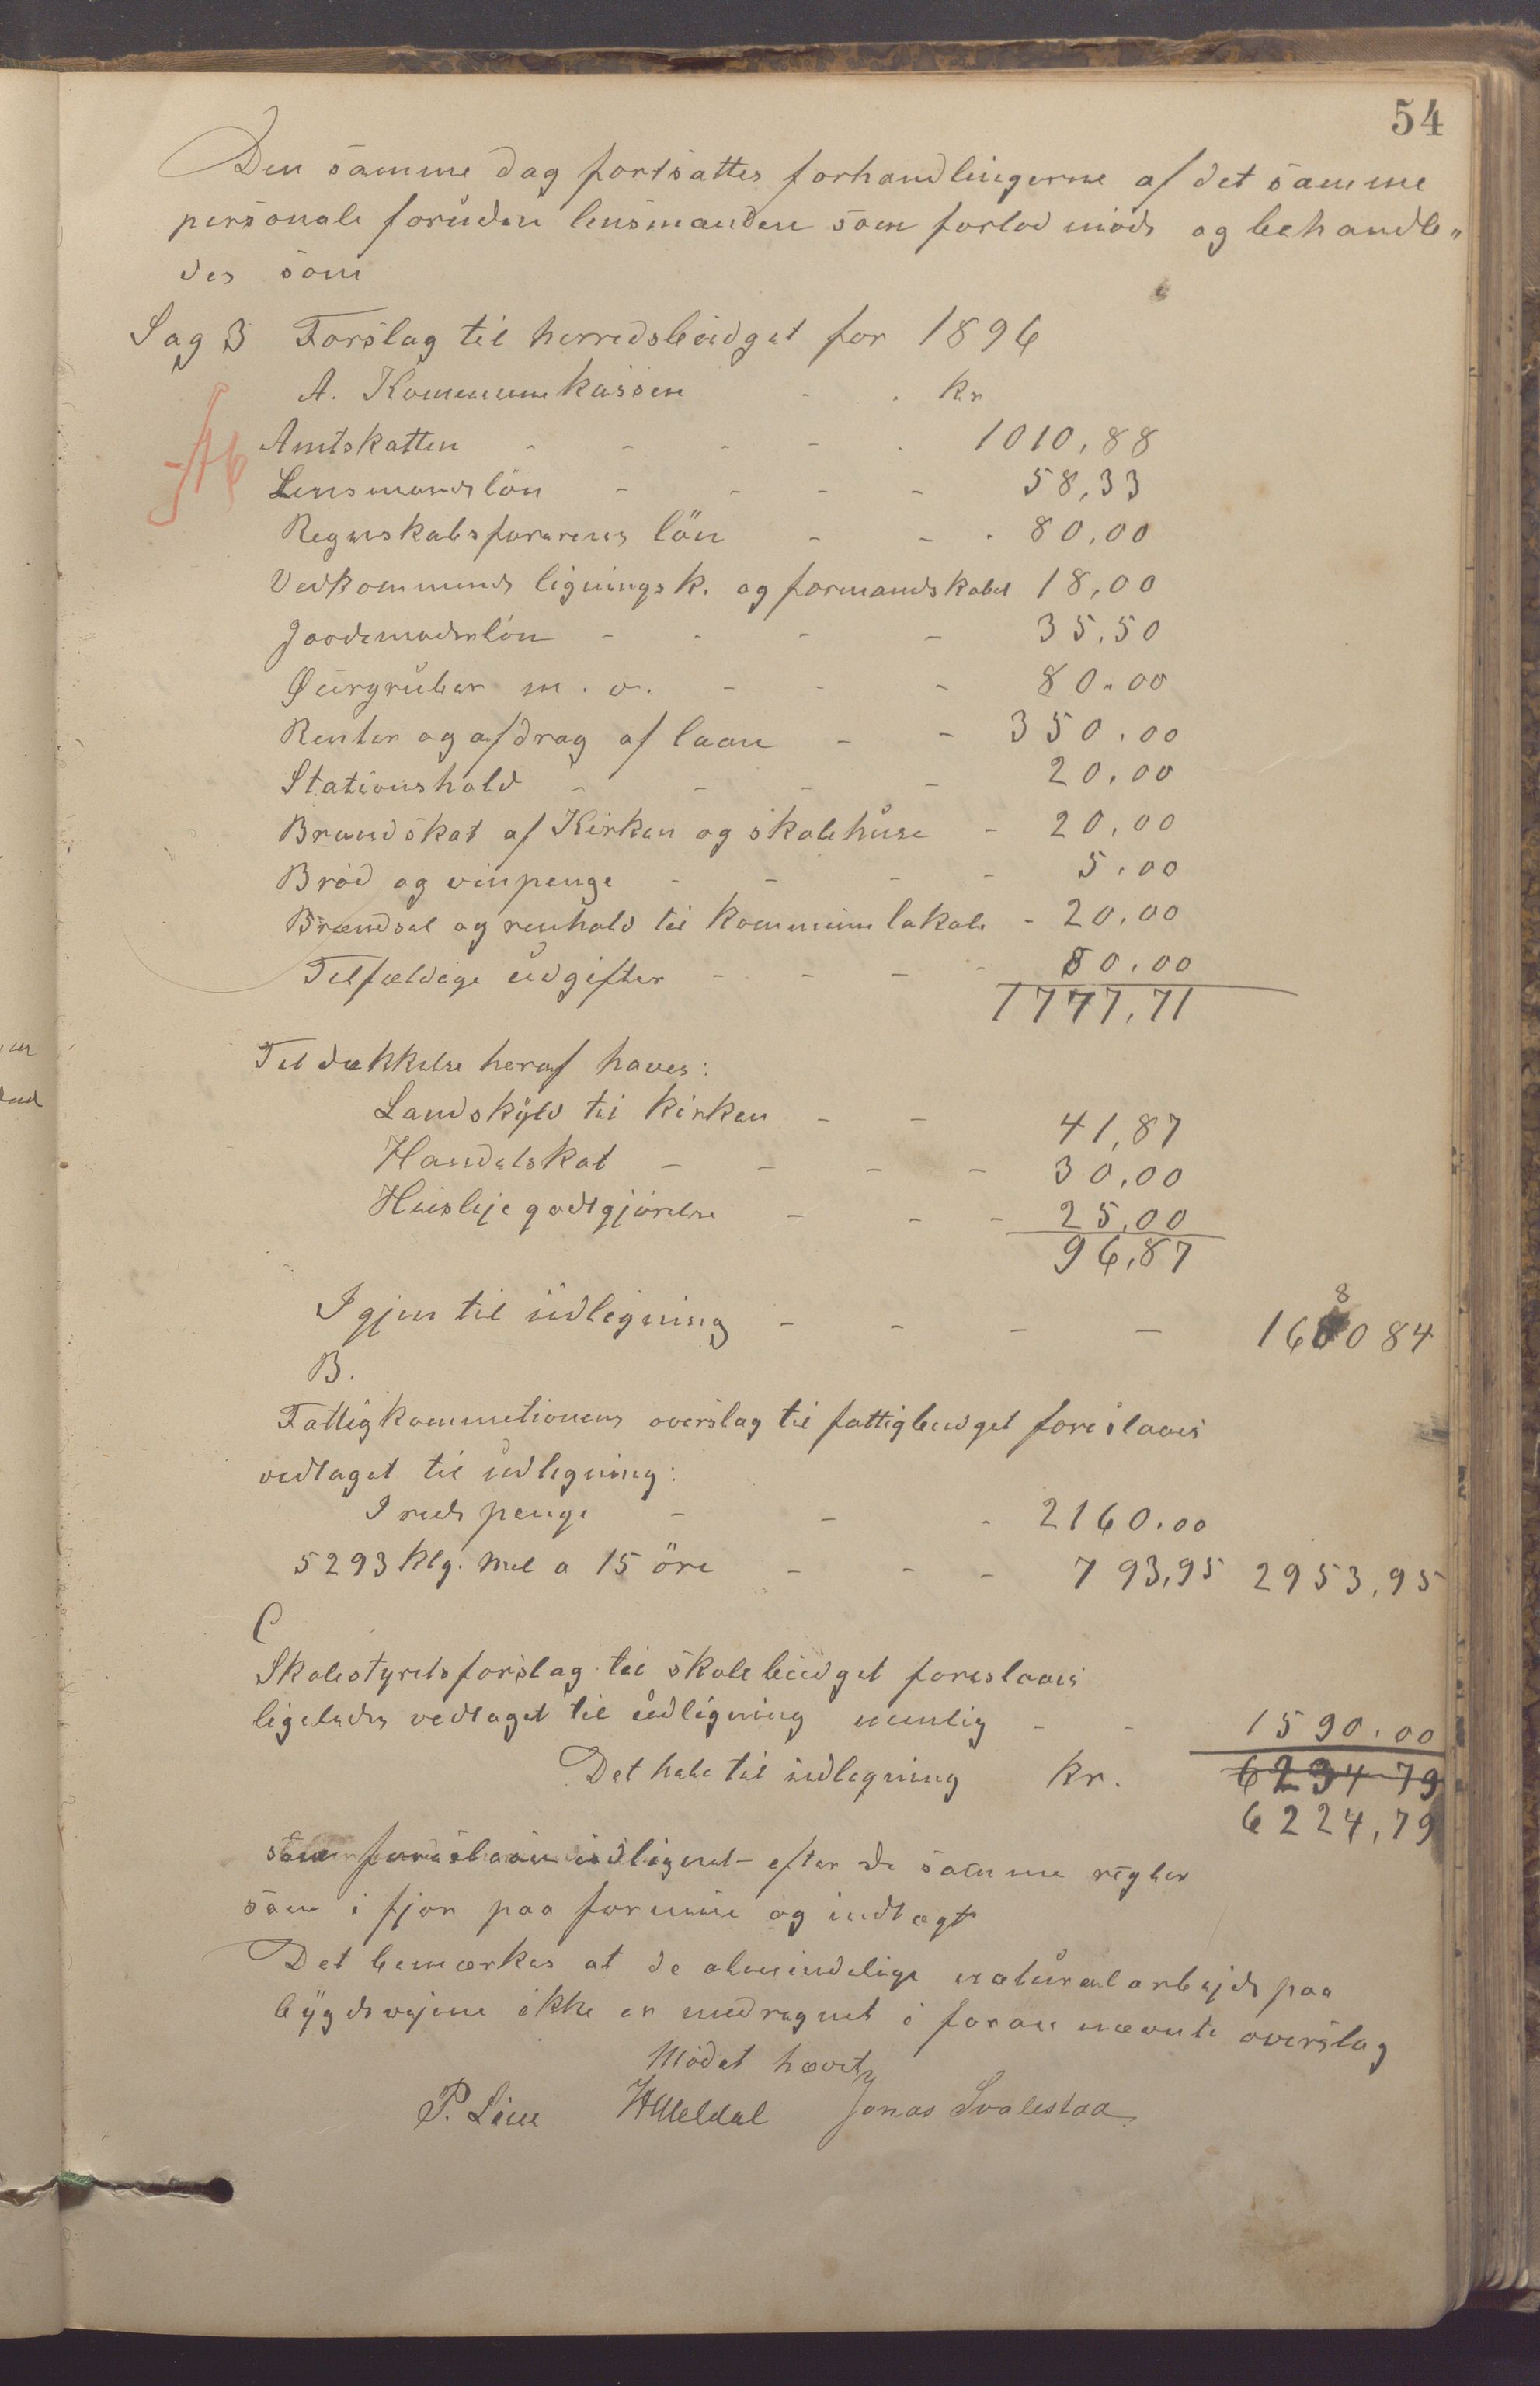 54
Den samme dag fortsattes forhandlingerne af det samme
personale foruden lensmanden som forlod møde og behandle„
des som
Sag 3 Forslag til herredsbudget for 1896
A. Kommunekassen - . Kr
Amtskatten - - - - . 1010,88
Lensmandsløn - - - - 58,33
Regnskabsførerens lön - - . 80,00
Vedkommende ligningsk. og formandskabet 18,00
Jordemoderløn - - - - 35,50
m. v. - - - 80.00
Renter og afdrag af laan - - 350.00
Stationshold - - - - 20,00
Brandskat af Kirken og skolehuse - 20,00
Brød og vinpenge - - - - 5,00
Brændsel og renhold til kommunelokale - 20,00
Tilfældige udgifter - - - - 80.00
1777,71
Til dækkelse heraf haves:
Landskyld til kirken - - 41,87
Handelskat - - - - 30,00
Husleje godtgjörelse - - - 25,00
96,87
Igjen til udligning - - - - 168084
B.
Fattigkommitionens overslag til fattigbudget foreslaaes
vedtaget til udligning:
I rede penge - - - 2160.00
5293 Klg. mel a 15 öre - - - 793,95 2953,95
C
Skolestyrets forslag til skolebudget foreslaaes
ligeledes vedtaget til udligning nemlig - - 1590.00
Det hele til udligning Kr. 6234 79
6224,79
som foreslaaes udlignet efter de samme regler
som i fjor paa formue og indtægt
Det bemærkes at de almindelige naturalarbejde paa
bygdevejene ikke er medregnet i foran nævnte overslag
Mødet hævet
P. Lima Jonas Svalestad